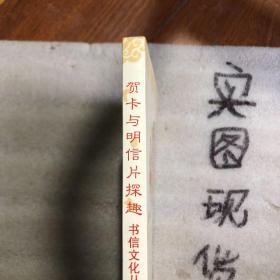 贺卡与明信片探趣 书信文化丛
实图现货